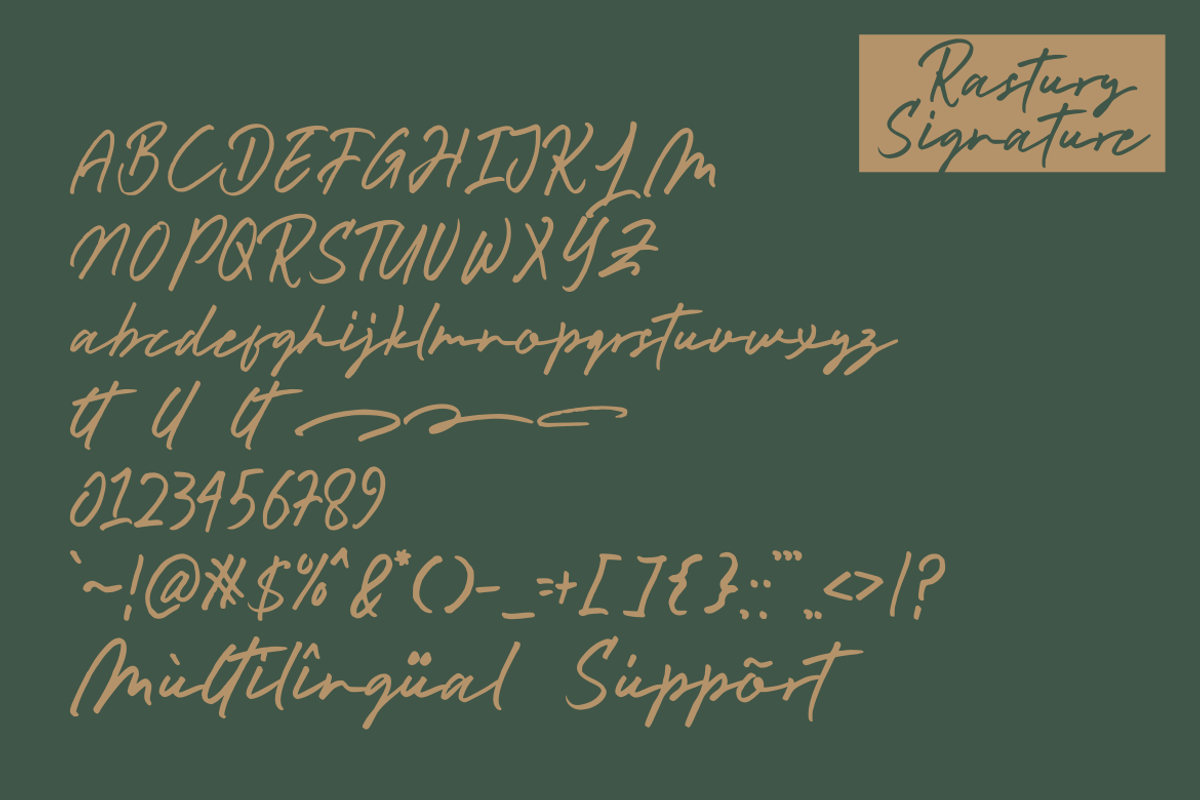 Rastury
Signature
ABCDEFGHIJKLM
NOPQRSTUVWXYZ
abcdefghijklmnopqrstuvwxyz
tt ll lt
0123456789
`~!@#$%^&*()-_=+[]{};:'",.<>/?
Mùltïlîngüal Súppõrt